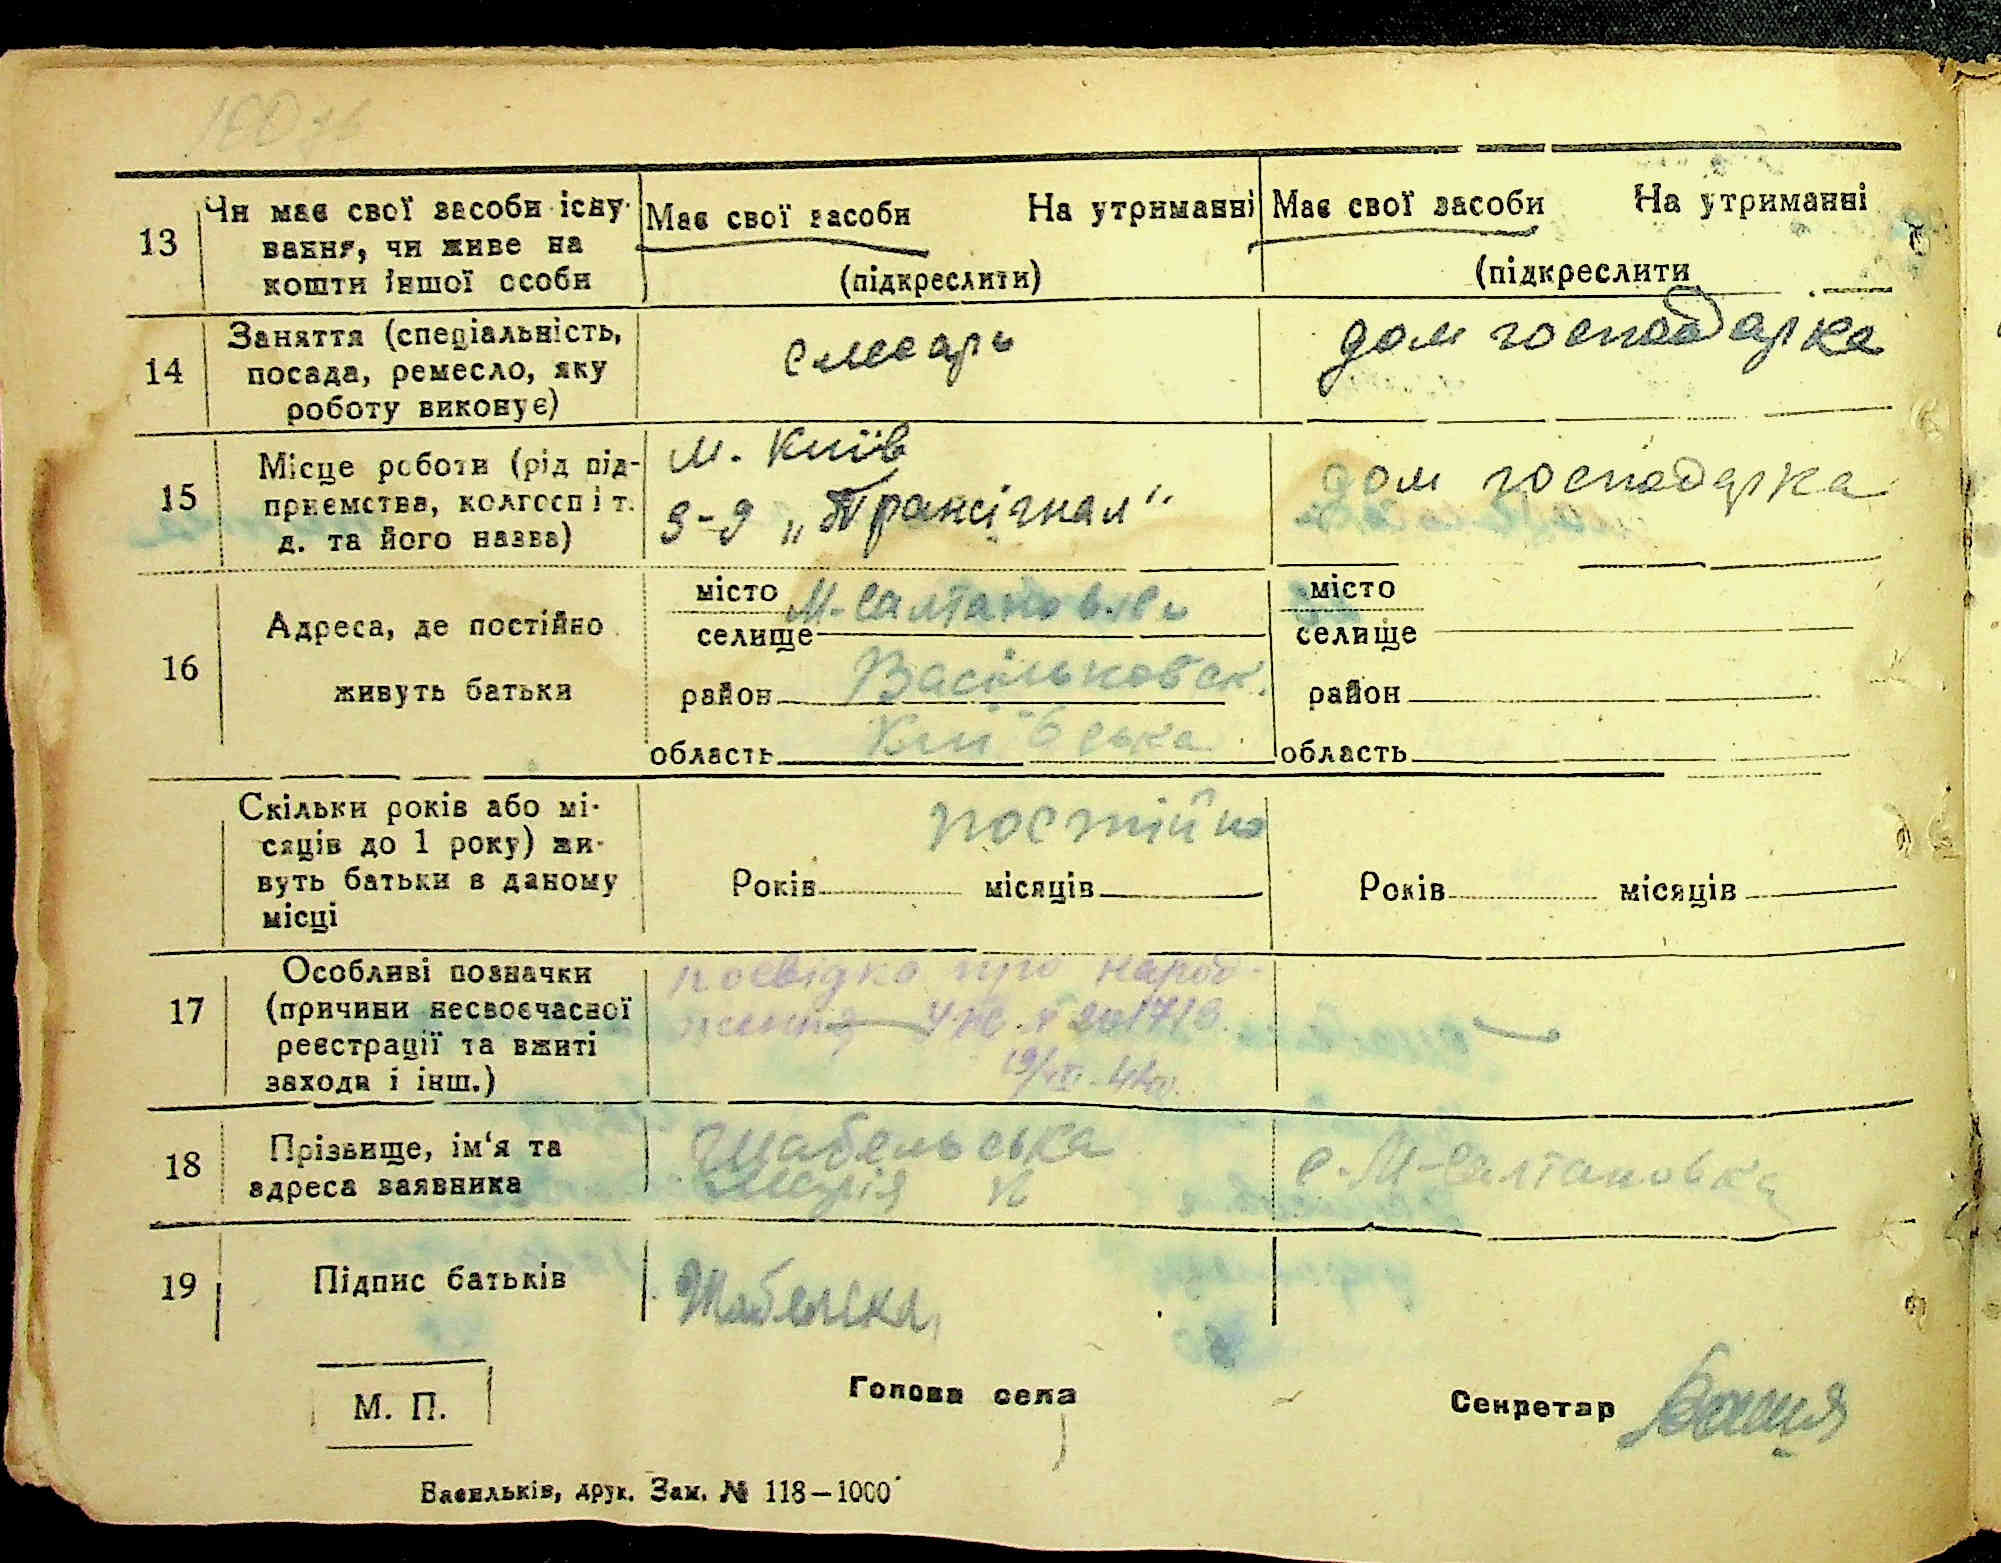 13
Чи має свої засоби існу-
вання, чи живе на
кошти іншої особи
Має свої засоби На утриманні
(підкреслити)
Має свої засоби На утриманні
(підкреслити
14
Заняття (спеціальність,
посада, ремесло, яку
роботу виконує)
слесарь
дом господарка
15
Місце роботи (рід під-
приємства, колгосп і т.
д. та його назва)
м. Київ
з-д „Трансігнал"
дом господарка
16
Адреса, де постійно
живуть батьки
місто
М-Салтановка
селище
район Васільковск.
область Київська
місто
селище
район
область
Скільки років або мі-
сяців до 1 року) жи-
вуть батьки в даному
місці
постійно
Років місяців
Років місяців
17
Особливі позначки
(причини несвоєчасної
реєстрації та вжиті
заходи і інш.)
посвідка про народ-
ження УЖ № 201718.
19/VII-41р.
18
Прізвище, ім‘я та
адреса заявника
Шабельська
Марія
с. М-Салтановка
19
Підпис батьків
М. П.
Голова села
Секретар
Васильків, друк. Зам. № 118—1000